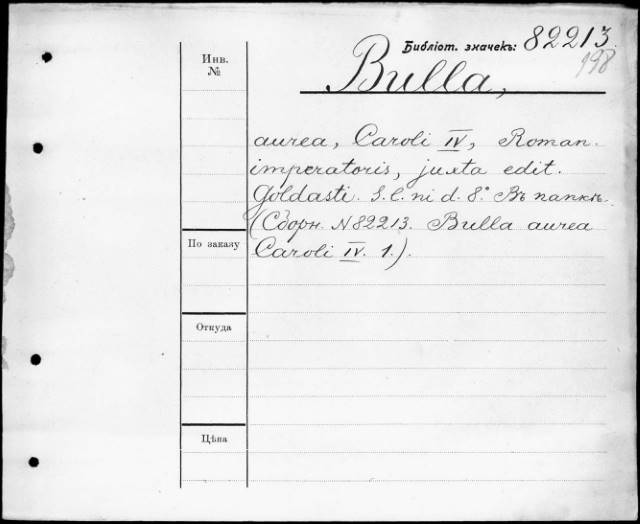 Библіот. значекъ: 82213.
198
Инв.
№
Bulla,
aurea, Caroli IV, Roman.
imperatoris, juxta edit.
Goldasti. S. l. ni d. 8.° Въ папкѣ.
(Сборн. N 82213. Bulla aurea
Caroli IV. 1.).
По заказу
Откуда
Цѣна